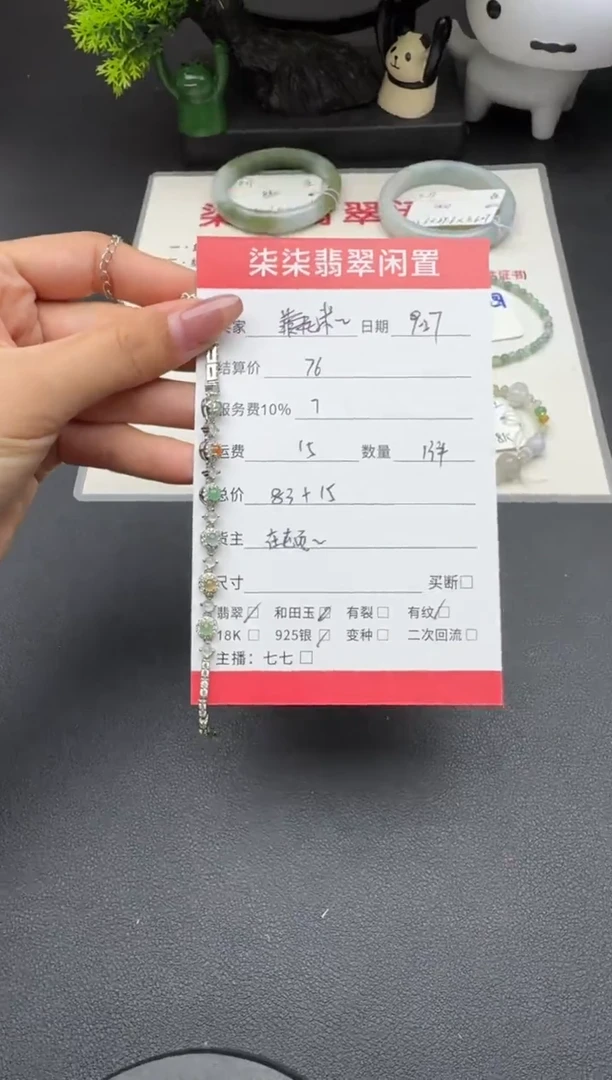 柒柒翡翠闲置
家 日期 9.27
结算价 76
服务费10% 7
运费 15 数量 1件
总价 83+15
货主
尺寸 买断□
翡翠☑ 和田玉☑ 有裂□ 有纹☑
18K□ 925银☑ 变种□ 二次回流□
主播：七七□